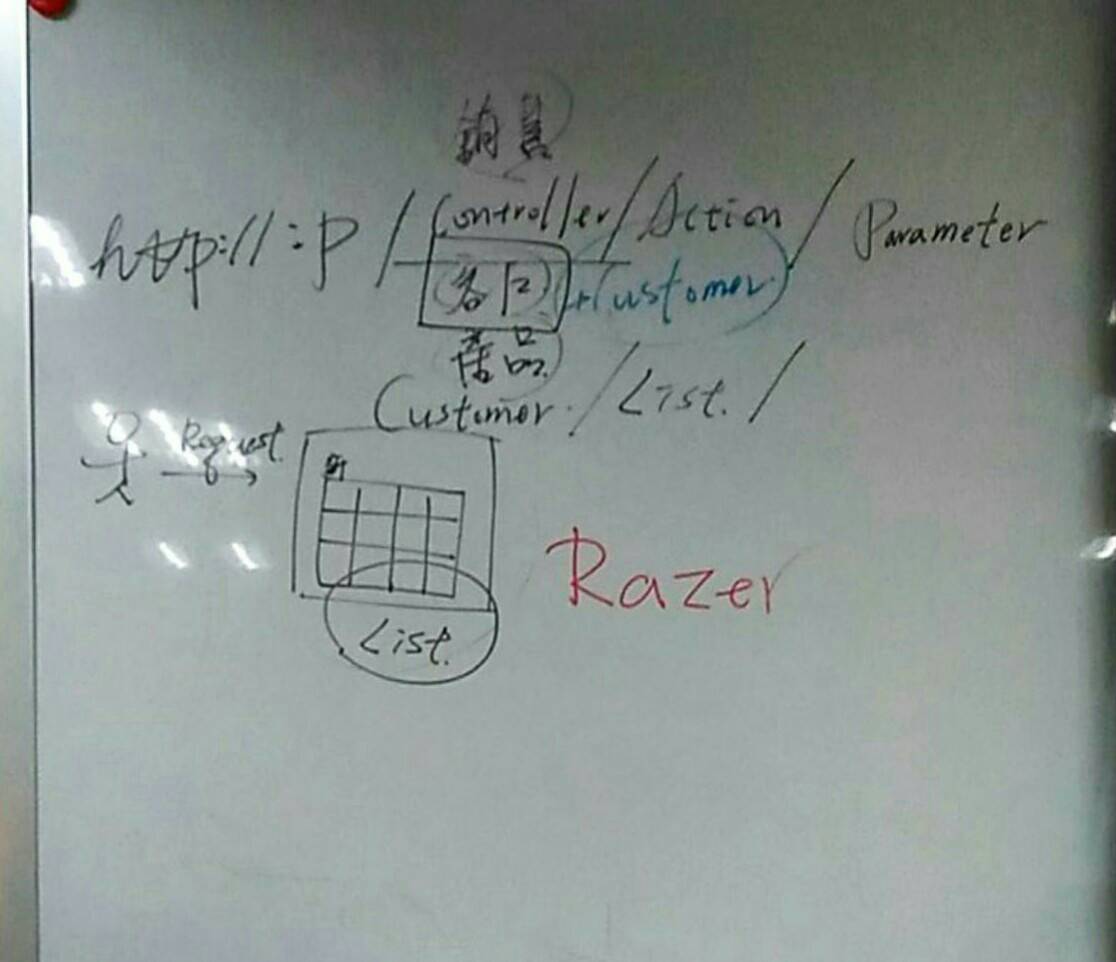 销售
http://:P/Controller/Action/Parameter
客户 Customer
产品
Customer/List./
Request
List.
Razer